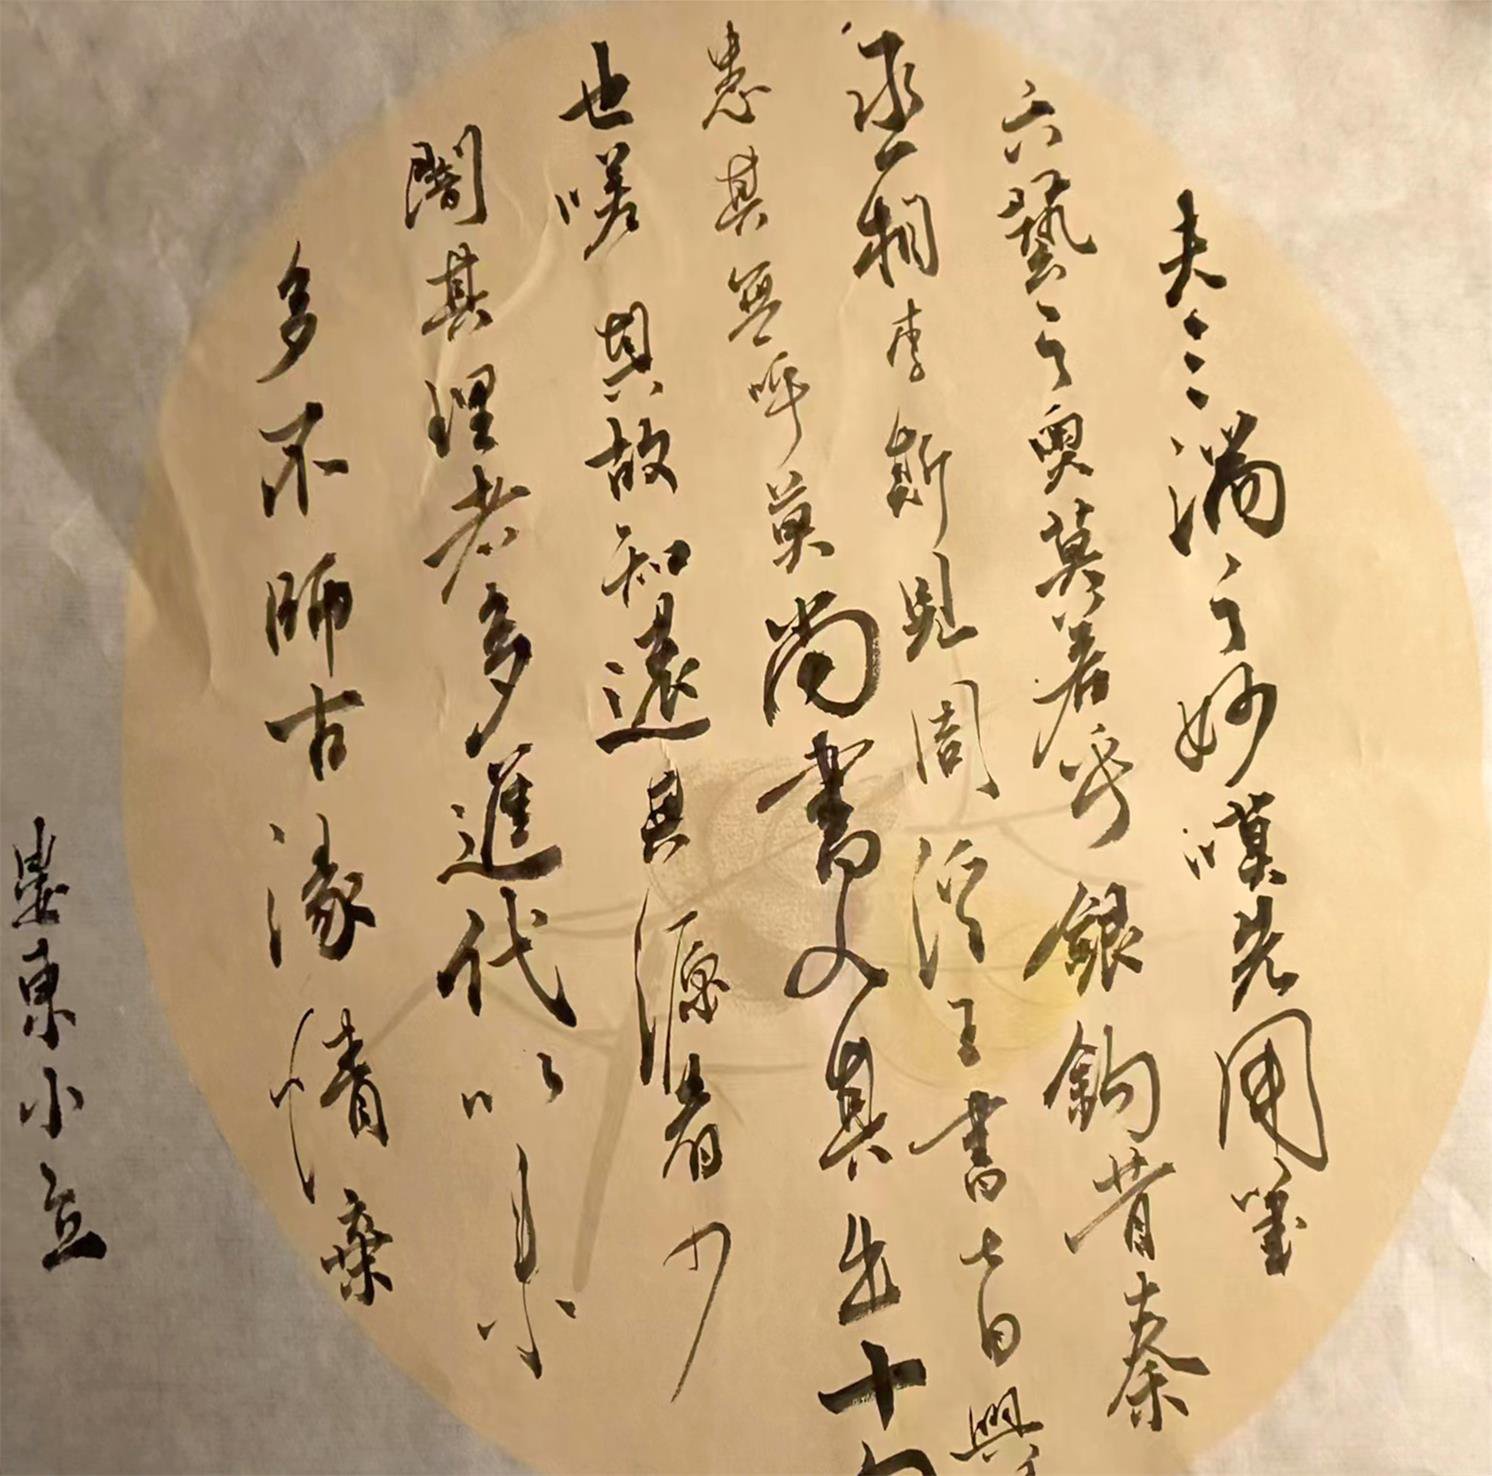 夫三湍之妙嗼先用筆
六藝之奥莫著乎銀鉤昔秦
丞相李斯見周王書七日興
患其無呼莫尚書入其出十
也嗟其故知遠其源者少
闇其理者多進代以来
多不師古濠情棄
婁東小立